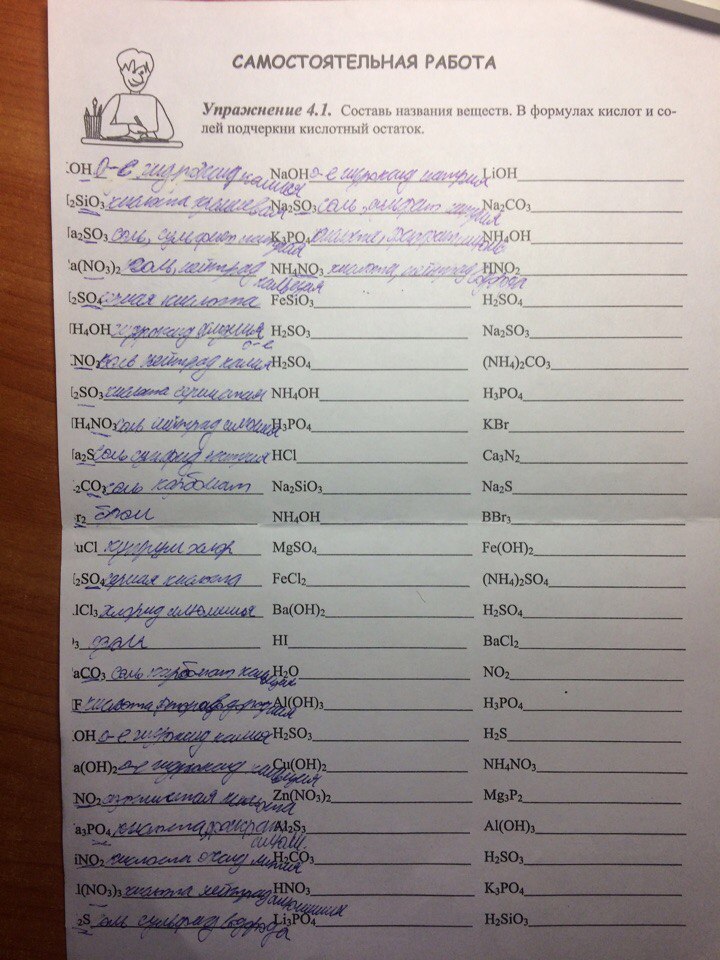 САМОСТОЯТЕЛЬНАЯ РАБОТА
Упражнение 4.1. Составь названия веществ. В формулах кислот и со-
лей подчеркни кислотный остаток.
OH о-е, гидроксид калия NaOH о-е гидроксид натрия LiOH
2SiO3 кислота кремневая Na2SO3 соль, сульфат натрия Na2CO3
a2SO3 соль, сульфит натрия K3PO4 NH4OH
a(NO3)2 соль, нейтрад кальция NH4NO3 кислота, нейтрад HNO2
2SO4 серная кислота FeSiO3 H2SO4
H4OH гидроксид амония о-е H2SO3 Na2SO3
NO3 соль нейтрад калия H2SO4 (NH4)2CO3
2SO3 кислота NH4OH H3PO4
H4NO3 соль нейтрад амония H3PO4 KBr
a2S соль сульфид натрия HCl Ca3N2
2CO3 соль карбонат Na2SiO3 Na2S
r2 бром NH4OH BBr3
uCl купрум хлор MgSO4 Fe(OH)2
2SO4 серная кислота FeCl2 (NH4)2SO4
lCl3 хлорид алюминия Ba(OH)2 H2SO4
3 озон HI BaCl2
aCO3 соль карбонат кальция H2O NO2
F кислота Al(OH)3 H3PO4
OH о-е гидроксид калия H2SO3 H2S
a(OH)2 о-е гидроксид кальция Cu(OH)2 NH4NO3
NO2 азотистая кислота Zn(NO3)2 Mg3P2
a3PO4 кислота Al2S3 Al(OH)3
iNO2 кислота оксид лития H2CO3 H2SO3
l(NO3)3 кислота нейтрад алюминия HNO3 K3PO4
2S соль сульфид водрода Li3PO4 H2SiO3